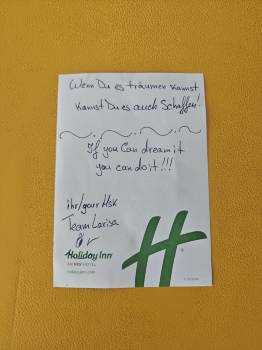 Wenn Du es träumen kannst
kannst Du es auch Schaffen!
If you Can dream it
you can do it!!!
ihr/your Hsk
Team Larisa
Holiday Inn
AN IHG HOTEL
holidayinn.com
H